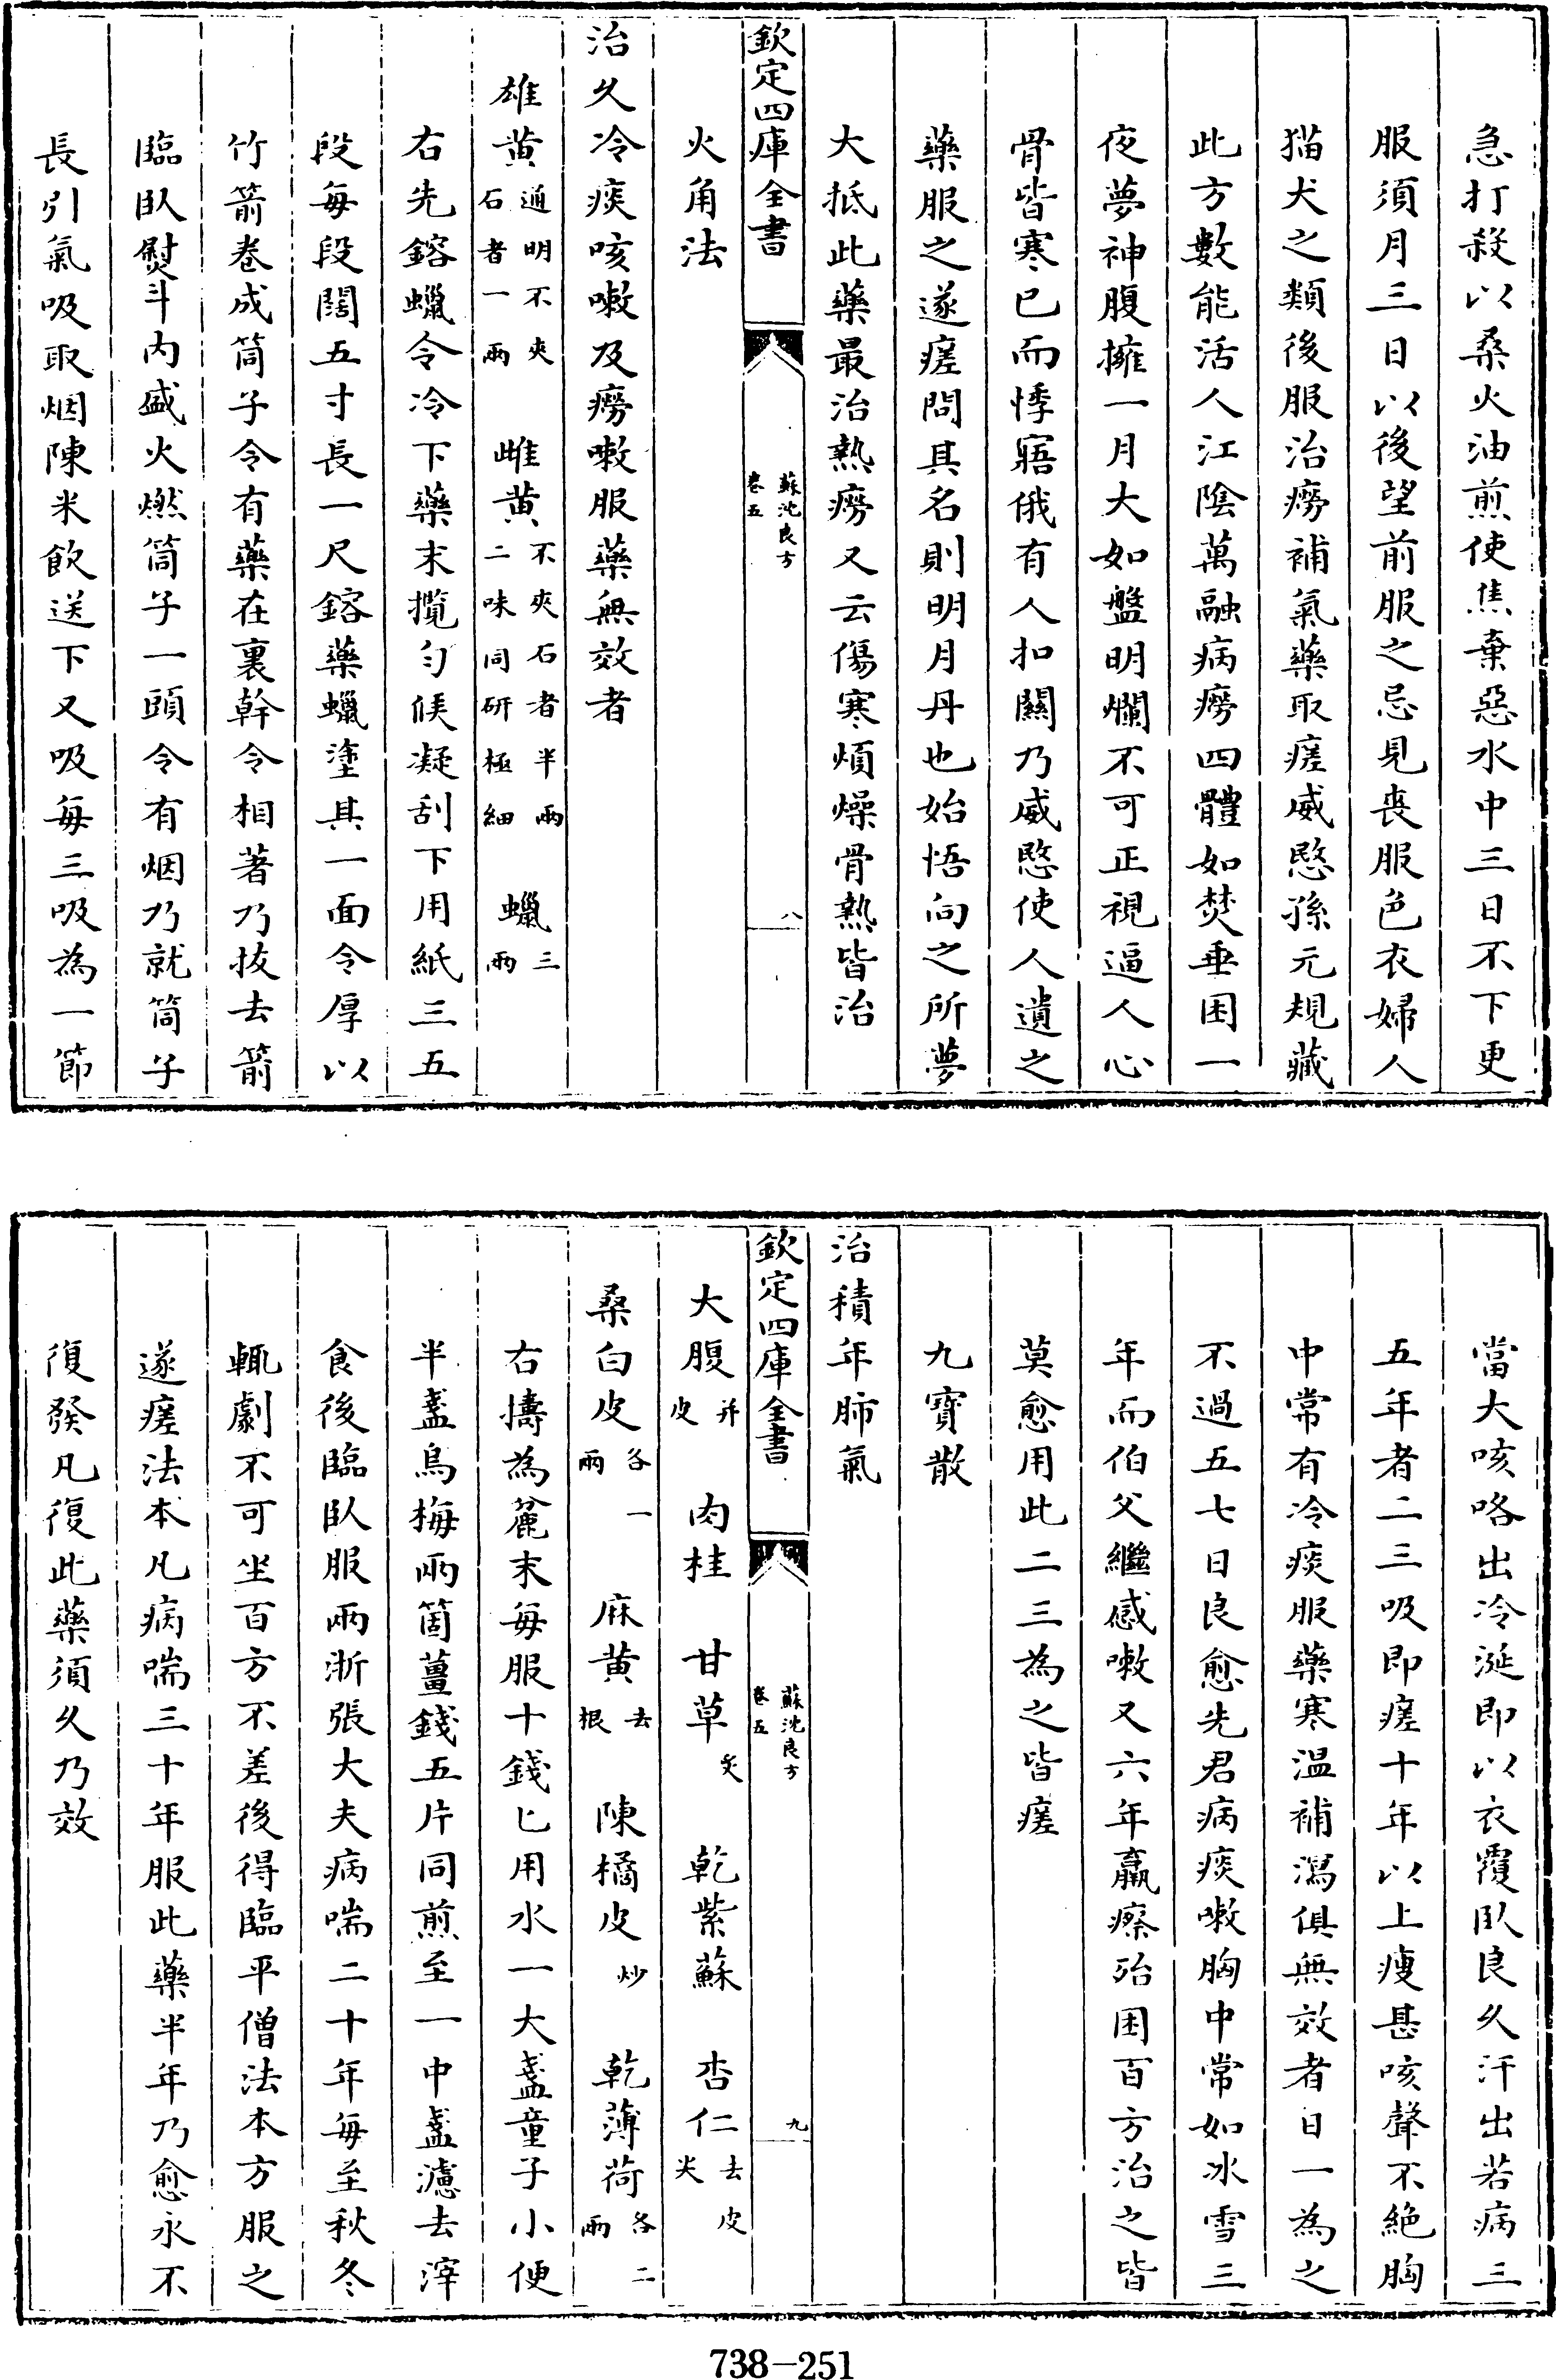 急打殺以桑火油煎使焦棄惡水中三日不下更
服須月三日以後望前服之忌見喪服色衣婦人
猫犬之類後服治癆補氣藥取瘥威愍孫元規藏
此方數能活人江陰萬融病癆四體如焚垂困一
夜夢神腹擁一月大如盤明爛不可正視逼人心
骨皆寒已而悸寤俄有人扣關乃威愍使人遺之
藥服之遂瘥問其名則明月丹也始悟向之所夢
大抵此藥最治熱癆又云傷寒煩燥骨熱皆治
欽定四庫全書
蘇沈良方
卷五
八
火角法
治久冷痰咳嗽及癆嗽服藥無效者
雄黄通明不夾石者一兩 雌黄不夾石者半兩二味同研極細 蠟三兩
右先鎔蠟令冷下藥末攪勻候凝刮下用紙三五
段每段闊五寸長一尺鎔藥蠟塗其一面令厚以
竹箭卷成筒子令有藥在裏幹令相著乃拔去箭
臨臥熨斗内盛火燃筒子一頭令有烟乃就筒子
長引氣吸取烟陳米飲送下又吸每三吸為一節
當大咳咯出冷涎即以衣覆臥良久汗出若病三
五年者二三吸即瘥十年以上瘦甚咳聲不絶胸
中常有冷痰服藥寒温補瀉俱無效者日一為之
不過五七日良愈先君病痰嗽胸中常如冰雪三
年而伯父繼感嗽又六年羸瘵殆困百方治之皆
莫愈用此二三為之皆瘥
九寶散
治積年肺氣
欽定四庫全書
蘇沈良方
卷五
九
大腹并皮 肉桂 甘草炙 乾紫蘇 杏仁去皮尖
桑白皮各一兩 麻黄去根 陳橘皮炒 乾薄荷各二兩
右擣為麄末每服十錢匕用水一大盞童子小便
半盞烏梅兩箇薑錢五片同煎至一中盞濾去滓
食後臨臥服兩浙張大夫病喘二十年每至秋冬
輒劇不可坐百方不差後得臨平僧法本方服之
遂瘥法本凡病喘三十年服此藥半年乃愈永不
復發凡復此藥須久乃效
738—251